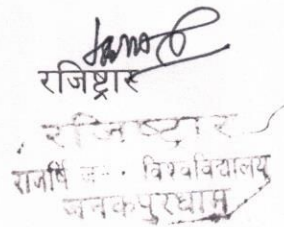 रजिष्ट्रार
रजिष्ट्रार
राजर्षि जनक विश्वविद्यालय
जनकपुरधाम